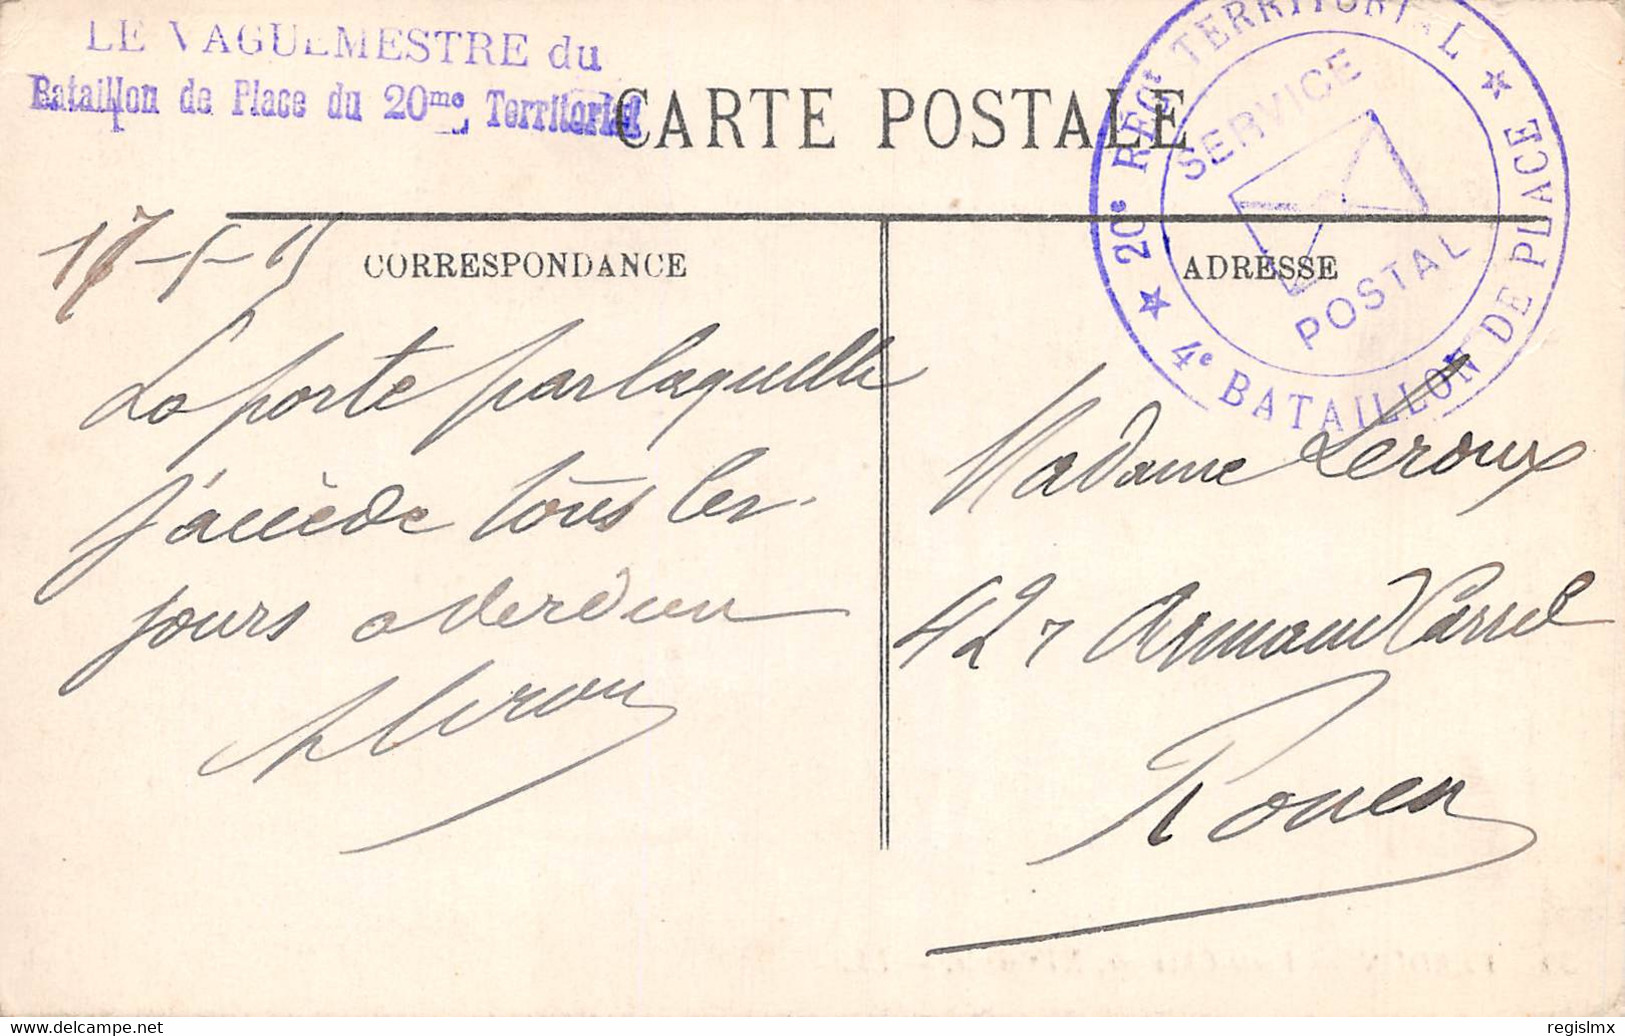 LE VAGUEMESTRE du
Bataillon de Place du 20me Territorial
CARTE POSTALE
20e REGt TERRITORIAL
4e BATAILLON DE PLACE
SERVICE
POSTAL
CORRESPONDANCE
ADRESSE
La porte par laquelle
j'accède tous les
jours a Verdun
Madame Leroux
42 r Armand Carrel
Rouen
www.delcampe.net
regislmx